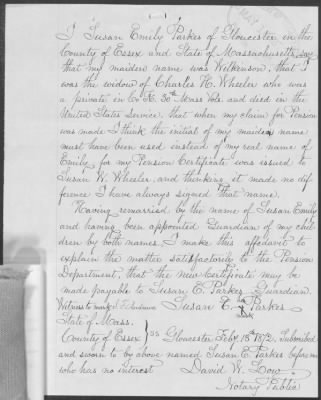 MAY
I Susan Emily Parkes of Gloucester in the
County of Essex and State of Massachusetts, say
that my maiden name was Wilkinson, that I
was the widow of Charles H. Wheeler who was
a private in Co. K. 30th Mass Vols. and died in the
United States Service. that when my claim for Pension
was made I think the initial of my maiden name
must have been used instead of my real name of
Emily, for my Pension Certificate was issued to
Susan W. Wheeler and thinking it made no dif
ference I have always signed that name.
Having remarried, by the name of Susan Emily
and having been appointed Guardian of my chil
dren by both names. I make this affidavit to
explain the matter satisfactorily to the Pension
Department, that the new Certificate may be
made payable to Susan E. Parkes Guardian.
Witness to mark Susan E. her Parkes
mark
State of Mass.
County of Essex } ss Gloucester Feby 15th 1872. Subscribed
and sworn to by above named Susan E. Parkes before me
who has no interest David W. Low
Notary Public